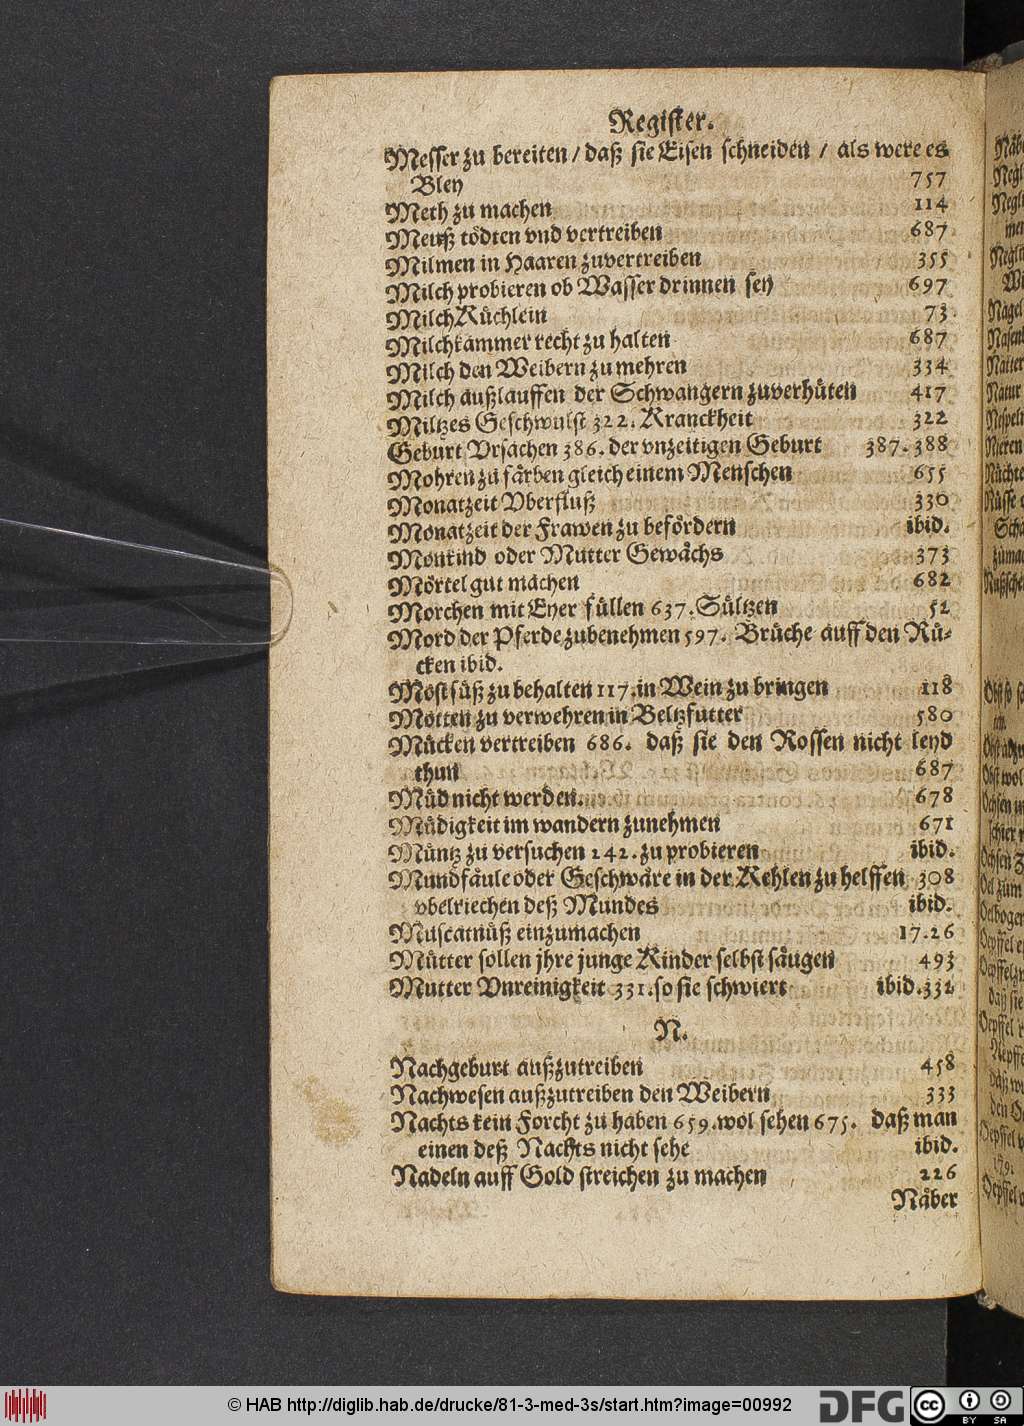 Register.
Messer zu bereiten / daß sie Eisen schneiden / als were es
Bley 757
Meth zu machen 114
Meuß tödten vnd vertreiben 687
Milmen in Haaren zuvertreiben 355
Milch probieren ob Wasser drinnen sey 697
Milch Küchlein 73
Milchkammer recht zu halten 687
Milch den Weibern zu mehren 334
Milch außlauffen der Schwangern zuverhüten 417
Miltzes Geschwulst 322. Kranckheit 322
Geburt Vrsachen 386. der vnzeitigen Geburt 387. 388
Mohren zu färben gleich einem Menschen 655
Monatzeit Vberfluß 330
Monatzeit der Frawen zu befördern ibid.
Monkind oder Mutter Gewächs 373
Mörtel gut machen 682
Morchen mit Eyer füllen 637. Sültzen 52
Mord der Pferde zubenehmen 597. Brüche auff den Rü-
cken ibid.
Most süß zu behalten 117. in Wein zu bringen 118
Motten zu verwehren in Beltzfutter 580
Mücken vertreiben 686. daß sie den Rossen nicht leyd
thun 687
Müd nicht werden. 678
Müdigkeit im wandern zunehmen 671
Müntz zu versuchen 242. zu probieren ibid.
Mundfäule oder Geschwäre in der Kehlen zu helffen 308
vbelriechen deß Mundes ibid.
Muscatnüß einzumachen 17. 26
Mütter sollen jhre junge Kinder selbst säugen 493
Mutter Vnreinigkeit 331. so sie schwiert ibid. 332
N.
Nachgeburt außzutreiben 458
Nachwesen außzutreiben den Weibern 333
Nachts kein Forcht zu haben 659. wol sehen 675. daß man
einen deß Nachts nicht sehe ibid.
Nadeln auff Gold streichen zu machen 226
Näber
© HAB http://diglib.hab.de/drucke/81-3-med-3s/start.htm?image=00992
DFG
cc BY SA